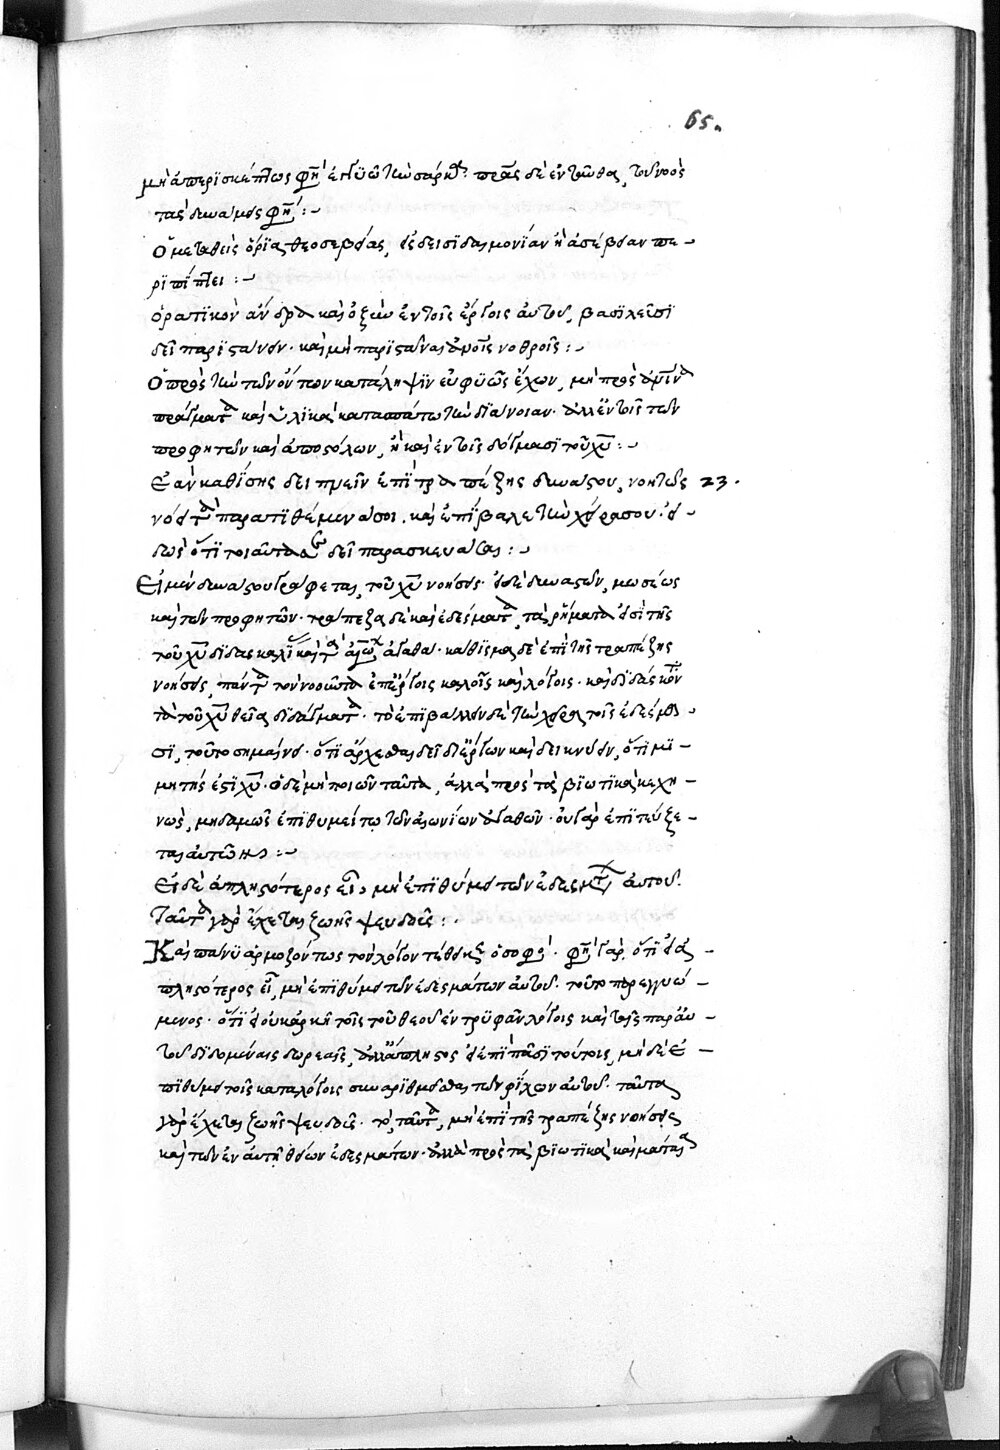 65.
μὴ ἀπερισκέπτως φησὶ ἐγγυῶ τὴν σάρκα. πράας δὲ ἐνταῦθα, τοῦ νοὸς
τὰς δυνάμεις φησί :
Ὁ μεταθεὶς ὅρια θεοσεβείας, εἰς δεισιδαιμονίαν ἢ ἀσέβειαν πε-
ριπίπτει :
ὁρατικὸν ἄνδρα καὶ ὀξὺν ἐν τοῖς ἔργοις αὐτοῦ, βασιλεῦσι
δεῖ παριστάνειν. καὶ μὴ παριστάναι νωθροῖς :
Ὁ πρὸς τὴν τῶν ὄντων κατάληψιν εὐφυῶς ἔχων, μὴ πρὸς
πράγματα καὶ ὑλικὰ κατασπάτω τὴν διάνοιαν. ἀλλ' ἐν τοῖς τῶν
προφητῶν καὶ ἀποστόλων, ἢ καὶ ἐν τοῖς δόγμασι τοῦ χυ :
Ἐὰν καθίσῃς δειπνεῖν ἐπὶ τραπέζης δυνάστου, νοητῶς 23.
νόει τὰ παρατιθέμενά σοι. καὶ ἐπίβαλε τὴν χεῖρα σου. εἰ-
δὼς ὅτι τοιαῦτά σε δεῖ παρασκευάσαι :
Εἰ μὲν δυνάστου γράφεται, τοῦ χυ νοήσεις. εἰ δὲ δυναστῶν, μωσέως
καὶ τῶν προφητῶν. τράπεζα δὲ καὶ ἐδέσματα, τὰ ῥήματα εἰσὶ τῆς
τοῦ χυ διδασκαλίας καὶ τὰ ἀγαθά. καθίσμα δὲ ἐπὶ τῆς τραπέζης
νοήσεις, πάντα τὸν νοοῦντα ἐπ' ἔργοις καλοῖς καὶ λόγοις. καὶ διδάσκοντα
τὰ τοῦ χυ θεῖα διδάγματα. τὸ ἐπιβάλλειν δὲ τὴν χεῖρα τοῖς ἐδέσμα
σι, τοῦτο σημαίνει. ὅτι ἄρχεσθαι δεῖ δι' ἔργων καὶ δεικνύειν, ὅτι μι-
μητής ἐστι χυ. ὁ δὲ μὴ ποιῶν ταῦτα, ἀλλὰ πρὸς τὰ βιωτικὰ κεχη-
νὼς, μηδαμῶς ἐπιθυμείτω τῶν αἰωνίων ἀγαθῶν. οὐ γὰρ ἐπιτεύξε-
ται αὐτῶν :
Εἰ δὲ ἀπληστότερος εἶ, μὴ ἐπιθύμει τῶν ἐδεσμάτων αὐτοῦ.
Ταῦτα γὰρ ἔχεται ζωῆς ψευδοῦς :
Καὶ πάνυ ἁρμοζόντως τὸν λόγον τέθεικεν ὁ σοφός. φησὶ γὰρ, ὅτι εἰ ἀ-
πληστότερος εἶ, μὴ ἐπιθύμει τῶν ἐδεσμάτων αὐτοῦ. τοῦτο παρεγγυώ-
μενος. ὅτι εἰ οὐκ ἀρκῇ τοῖς τοῦ θεοῦ ἐντρυφᾶν λόγοις καὶ ταῖς παρ' αὐ-
τοῦ διδομέναις δωρεαῖς, ἀλλ' ἄπληστος εἶ ἐπὶ πᾶσι τούτοις, μηδὲ ἐ-
πιθύμει τοῖς καταλόγοις συναριθμεῖσθαι τῶν αὐτοῦ. ταῦτα
γὰρ ἔχεται ζωῆς ψευδοῦς. τὸ, ταῦτα, μὴ ἐπὶ τῆς τραπέζης νοήσεις
καὶ τῶν ἐν αὐτῇ θείων ἐδεσμάτων. ἀλλὰ πρὸς τὰ βιωτικὰ καὶ μάταια